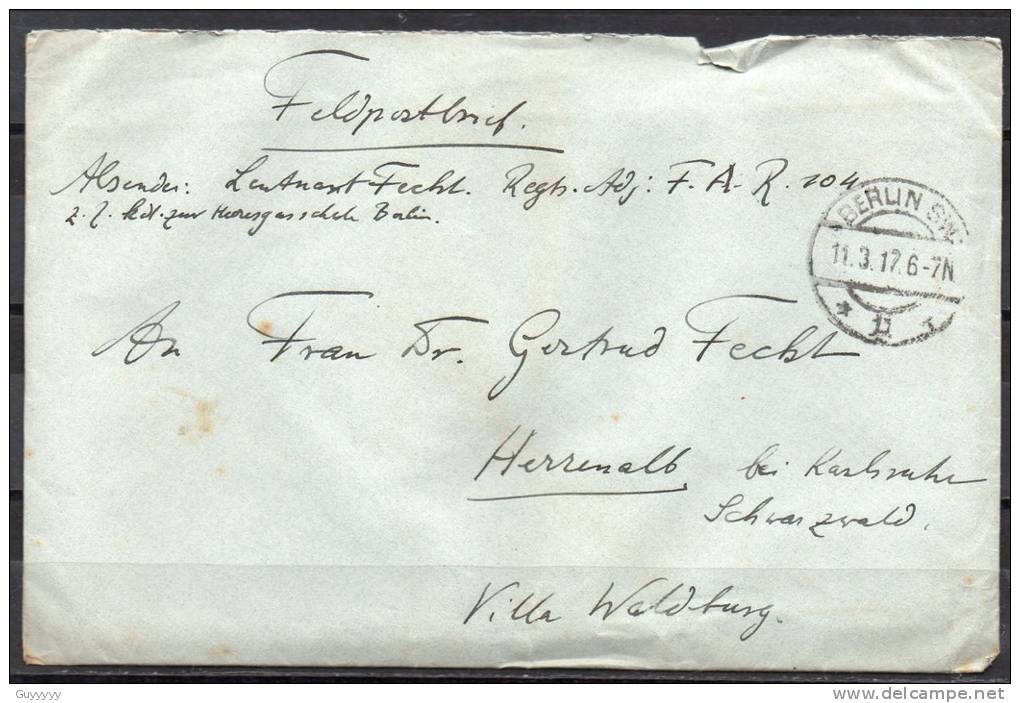 Feldpostbrief.
Absender: Leutnant Fecht. Regts. Adj: F. A. R. 104
z. Z. kdt. zur Heeresgasschule Berlin.
BERLIN SW
11.3.17.6-7N
* 11
An Frau Dr. Gertrud Fecht
Herrenalb bei Karlsruhe
Schwarzwald.
Villa Waldburg.
Guyyyyy
www.delcampe.net